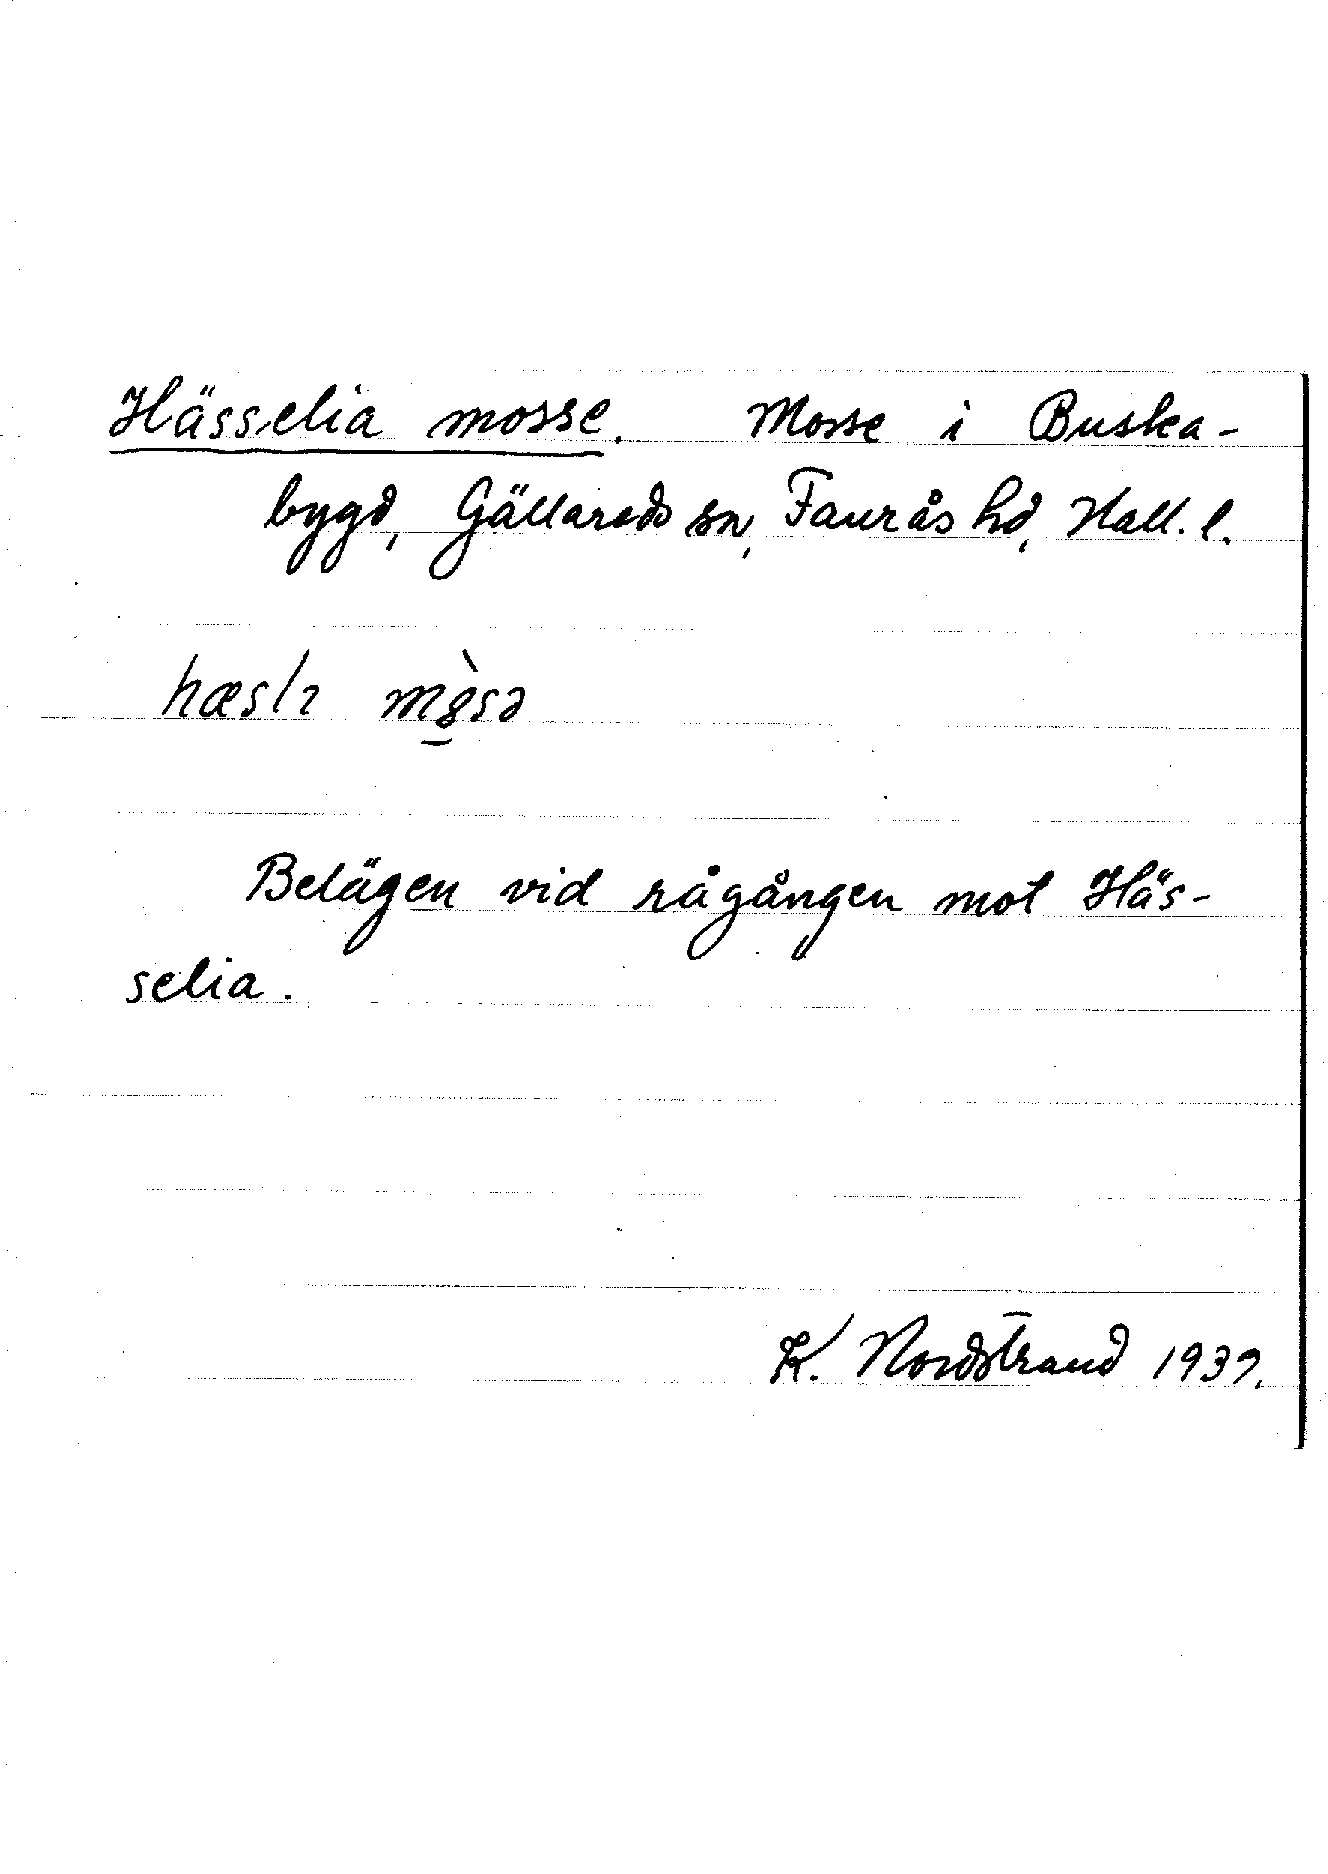 Hässelia mosse. Mosse i Buska-
bygd, Gällareds sn, Faurås hd, Hall. l.
hæslɿ mòsə
Belägen vid rågången mot Häs-
selia.
K. Nordstrand 1937.